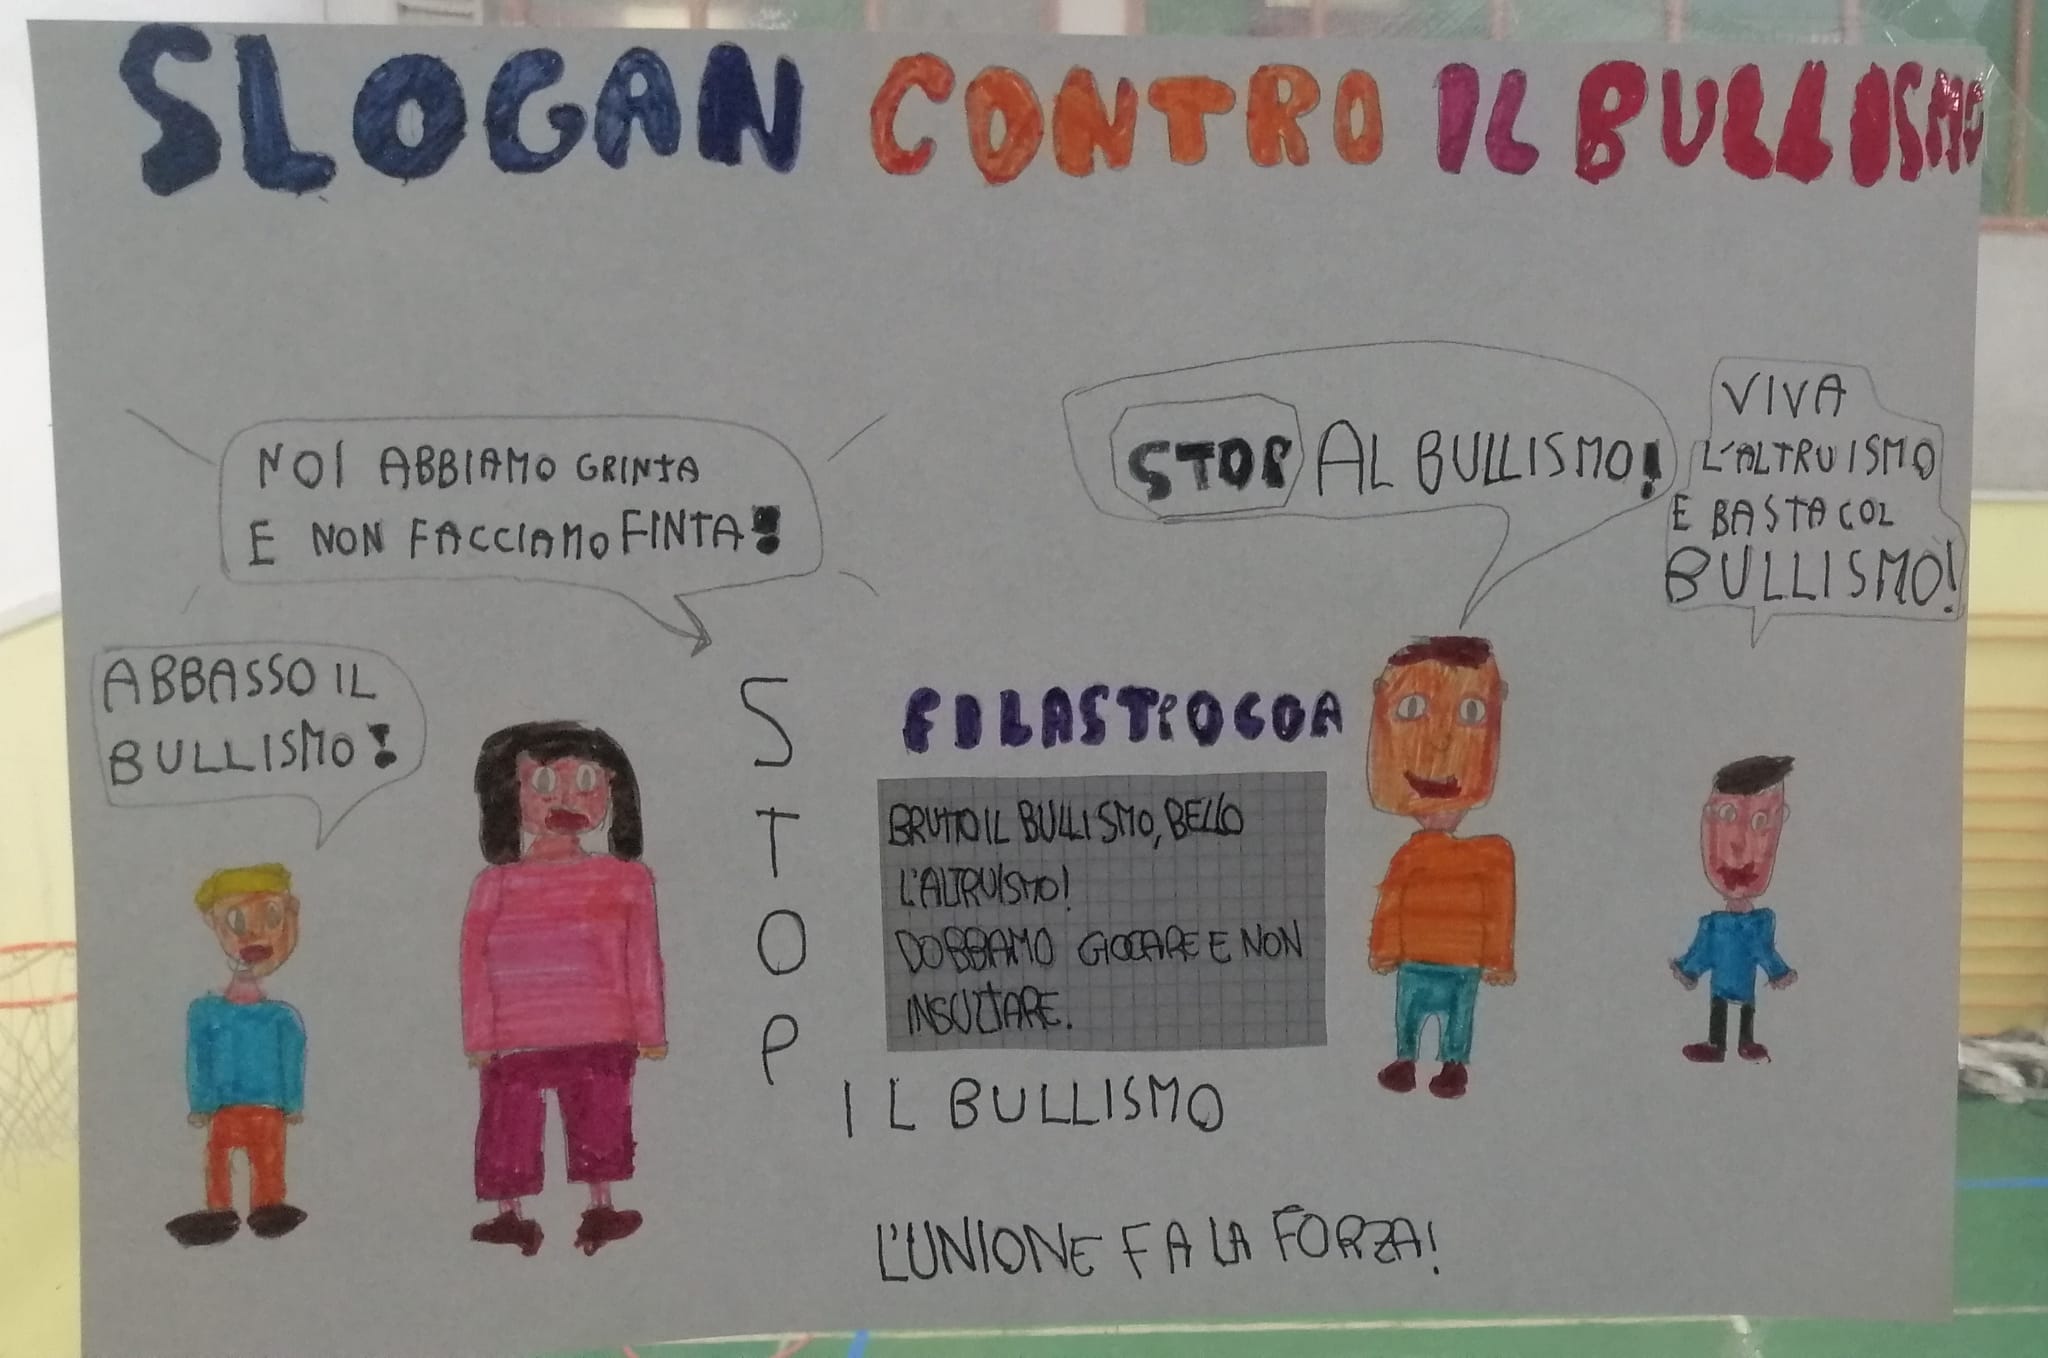 SLOGAN CONTRO IL BULLISMO
NOI ABBIAMO GRINTA
E NON FACCIAMO FINTA!
STOP AL BULLISMO!
VIVA
L'ALTRUISMO
E BASTA COL
BULLISMO!
ABBASSO IL
BULLISMO!
STOP
FILASTROCCA
BRUTTO IL BULLISMO, BELLO
L'ALTRUISMO!
DOBBIAMO GIOCARE E NON
INSULTARE.
IL BULLISMO
L'UNIONE FA LA FORZA!